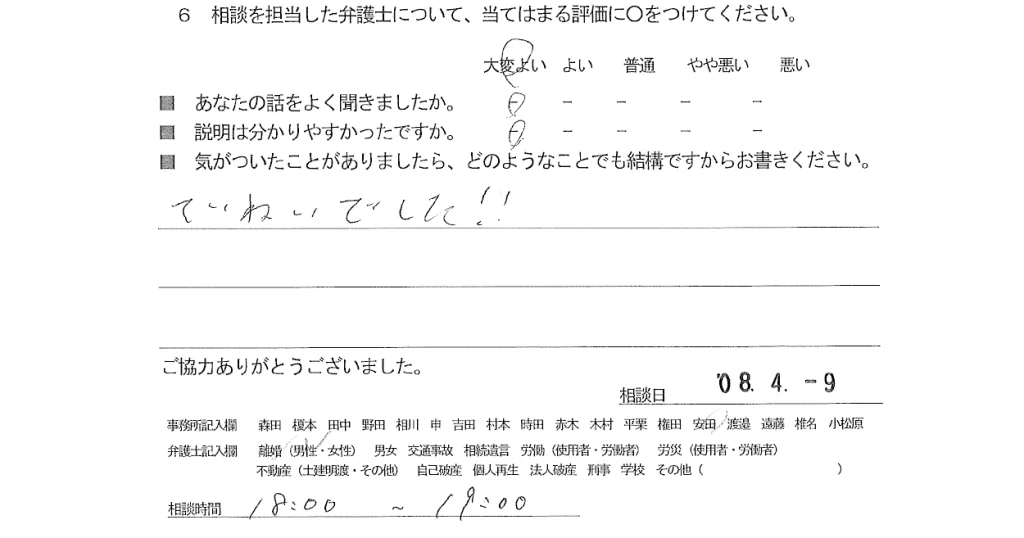 6 相談を担当した弁護士について、当てはまる評価に○をつけてください。
大変よい よい 普通 やや悪い 悪い
■ あなたの話をよく聞きましたか。 − − − − −
■ 説明は分かりやすかったですか。 − − − − −
■ 気がついたことがありましたら、どのようなことでも結構ですからお書きください。
ていねいでした!!
ご協力ありがとうございました。
相談日 '08.4.-9
事務所記入欄 森田 榎本 田中 野田 相川 申 吉田 村本 時田 赤木 木村 平栗 権田 安田 渡邉 遠藤 椎名 小松原
弁護士記入欄 離婚(男性・女性) 男女 交通事故 相続遺言 労働(使用者・労働者) 労災(使用者・労働者)
不動産(土建明渡・その他) 自己破産 個人再生 法人破産 刑事 学校 その他( )
相談時間 18:00 ~ 19:00